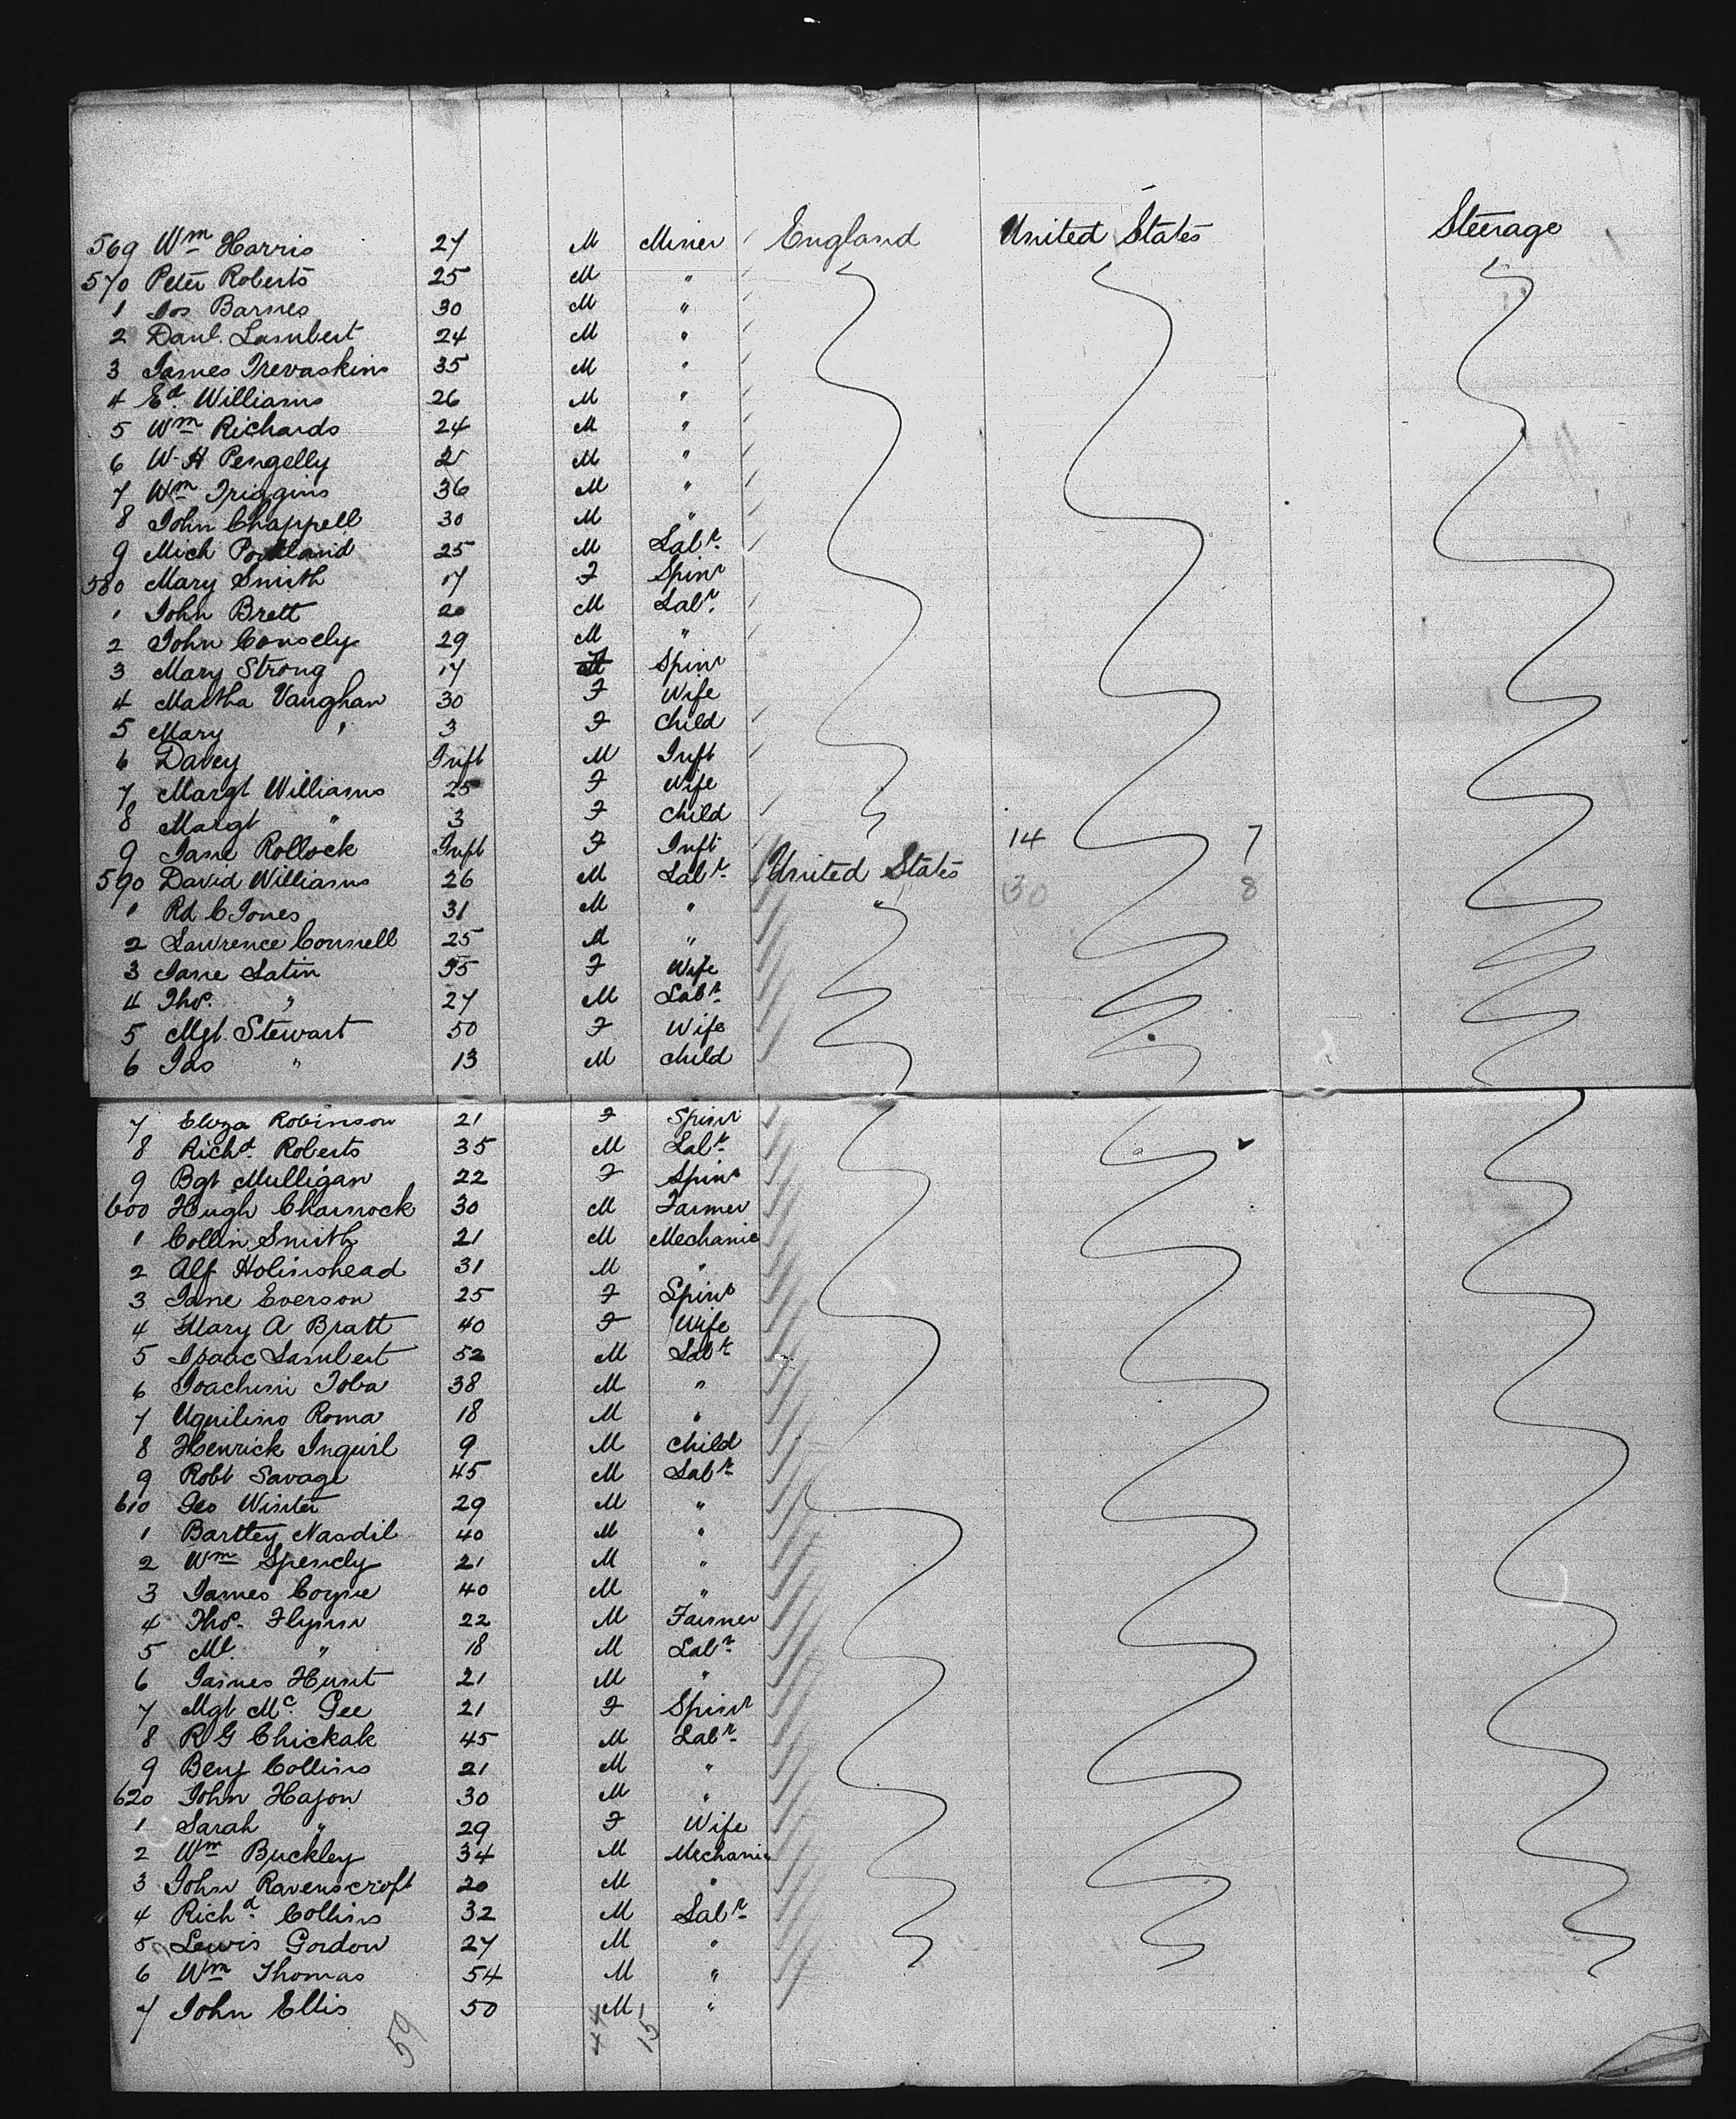 569 Wm Harris 27 M Miner England United States Steerage
570 Peter Roberts 25 M "
1 Jos Barnes 30 M "
2 Danl. Lambert 24 M "
3 James Trevaskins 35 M "
4 Ed. Williams 26 M "
5 Wm Richards 24 M "
6 W. H Pengelly 21 M "
7 Wm Triggins 36 M "
8 John Chappell 30 M "
9 Mich 25 M Labr.
580 Mary Smith 17 F Spinr
1 John Brett 20 M Labr.
2 John Consely 29 M "
3 Mary Strong 17 F Spinr
4 Martha Vaughan 30 F Wife
5 Mary " 3 F Child
6 Davey Inft M Inft
7 Margt Williams 25 F Wife
8 Margt " 3 F Child
9 Jane Rollock Inft F Inft 14 7
590 David Williams 26 M Labr. United States 30 8
1 Rd C Jones 31 M " "
2 Lawrence Connell 25 M "
3 Jane Latin 55 F Wife
4 Thos. " 27 M Labr.
5 Mgt. Stewart 50 F Wife
6 Jas " 13 M Child
7 Eliza Robinson 21 F Spinr
8 Richd. Roberts 35 M Labr.
9 Bgt Mulligan 22 F Spinr
600 Hugh Charnock 30 M Farmer
1 Collin Smith 21 M Mechanic
2 Alf Holinshead 31 M "
3 Jane Everson 25 F Spinr
4 Mary A Bratt 40 F Wife
5 Isaac Lambert 52 M Labr.
6 Joachim Toba 38 M "
7 Uquilino Roma 18 M "
8 Henrick Inguil 9 M Child
9 Robt Savage 45 M Labr.
610 Geo Winter 29 M "
1 Bartley Nasdil 40 M "
2 Wm Spencly 21 M "
3 James Coyne 40 M "
4 Thos. Flynn 22 M Farmer
5 Ml. " 18 M Labr.
6 James Hunt 21 M "
7 Mgt Mc Gee 21 F Spinr
8 R G Chickak 45 M Labr.
9 Benj Collins 21 M "
620 John Hajon 30 M "
1 Sarah " 29 F Wife
2 Wm Buckley 34 M Mechanic
3 John Ravenscroft 20 M "
4 Richd. Collins 32 M Labr.
5 Lewis Gordon 27 M "
6 Wm Thomas 54 M "
7 John Ellis 50 M "
59 44 15